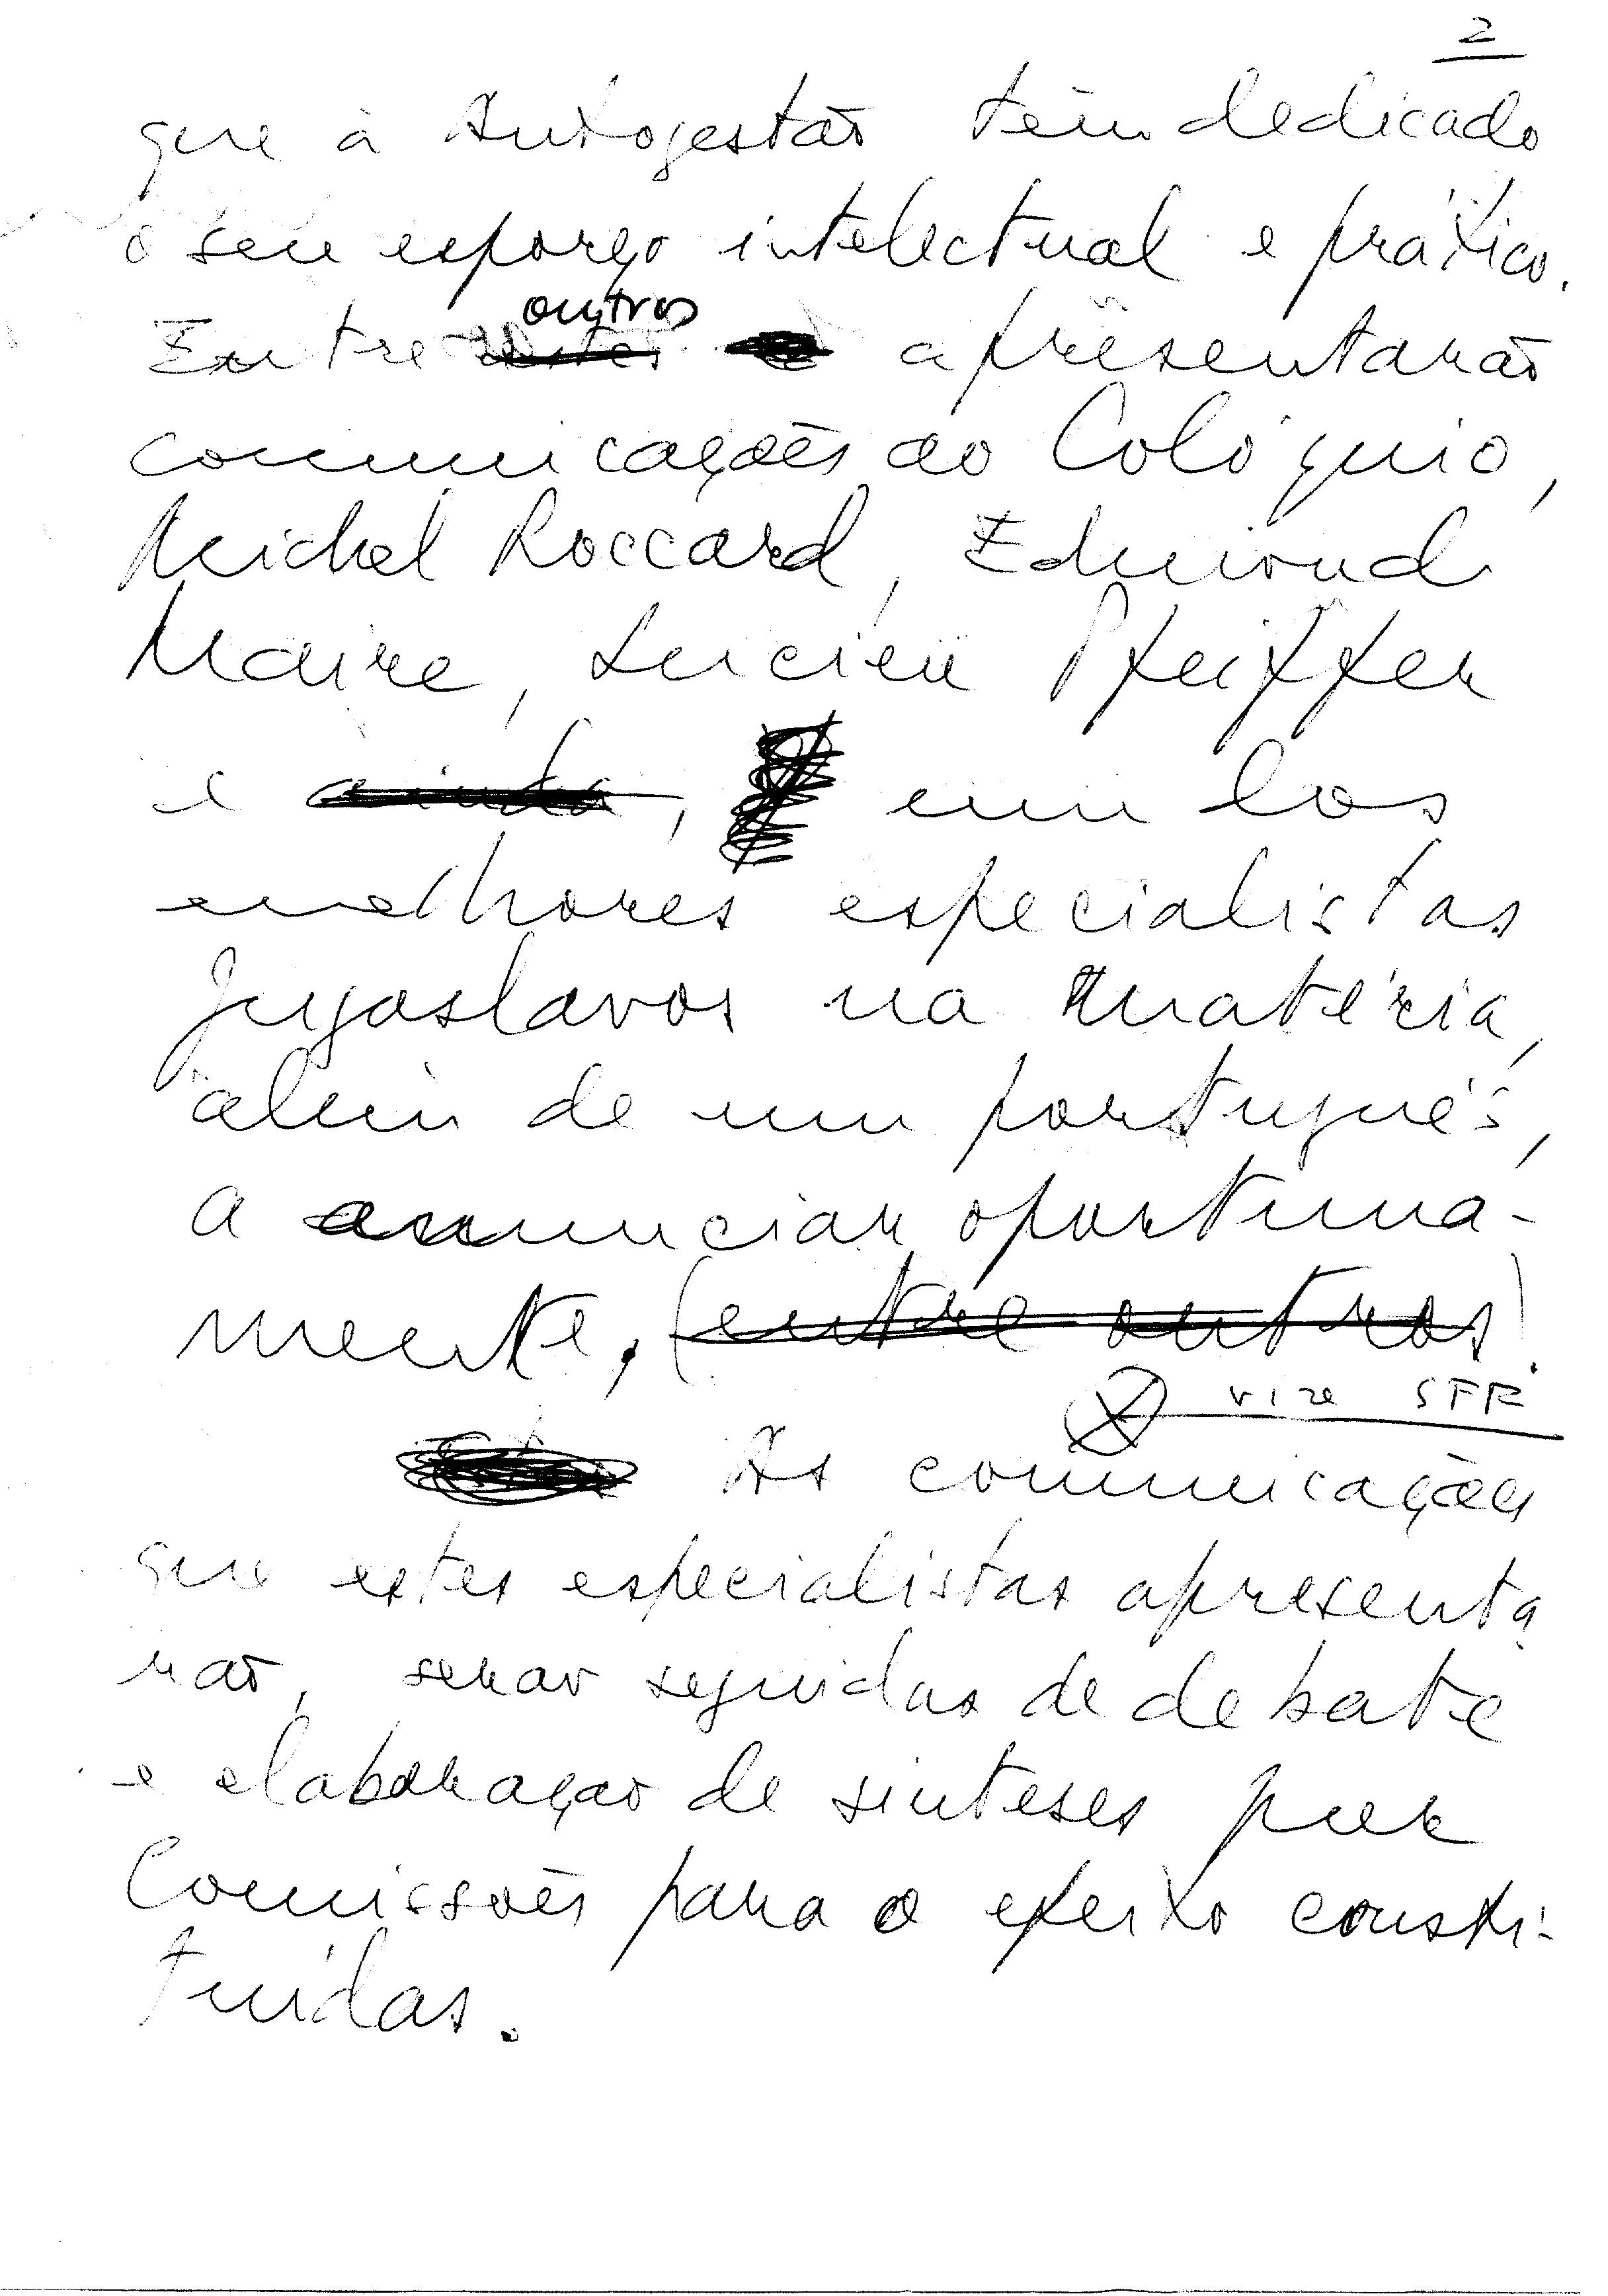 2
que à Autogestão têm dedicado
o seu esforço intelectual e prático.
outros
Entre estes apresentarão
comunicações ao Colóquio,
Michel Roccard, Edmond
Maire, Lucien Pfeiffer
e ainda, um dos
melhores especialistas
jugoslavos na matéria,
além de um português,
a anunciar oportuna-
mente, (entre outros).
vire SFR
As comunicações
que estes especialistas apresenta
rão, serão seguidas de debate
e elaboração de sínteses por
Comissões para o efeito consti-
tuídas.